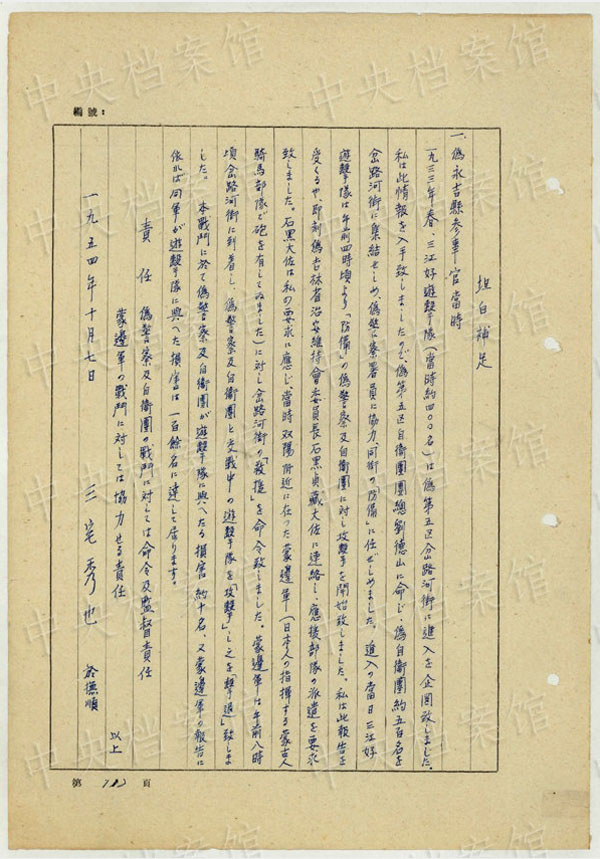 編號：
坦白補足
一、偽永吉縣参事官當時
一九三三年春、三江好遊擊隊（當時約四〇〇名）は偽第五区岔路河街に進入を企図致しました。
私は此情報を入手致しましたので、偽第五区自衛團團總劉德山に命じ、偽自衛團約五百名を
岔路河街に集結せしめ、偽警察署員に協力、同街の「防備」に任ぜしめました。進入の當日三江好
遊擊隊は午前四時頃より「防備」の偽警察及自衛團に対し攻擊を開始致しました。私は此報告を
受くるや、即刻偽吉林省治安維持會委員長石黒貞藏大佐に連絡し、應援部隊の派遣を要求
致しました。石黒大佐は私の要求に應じ、當時双陽附近に在つた蒙邊軍（日本人の指揮する蒙古人
騎馬部隊で砲を有してゐました）に対し岔路河街の「救援」を命令致しました。蒙邊軍は午前八時
頃岔路河街に到着し、偽警察及自衛團と交戰中の遊擊隊を「攻擊」し之を「擊退」致しま
した。本戰鬥に於て偽警察及自衛團が遊擊隊に與へたる損害約十名、又蒙邊軍の報告に
依れば同軍が遊擊隊に與へた損害は一百餘名に達して居ります。
責任　偽警察及自衛團の戰鬥に対しては命令及監督責任
蒙邊軍の戰鬥に対しては協力せる責任
以上
一九五四年十月七日　三宅秀也　於撫順
第　頁
中央档案馆